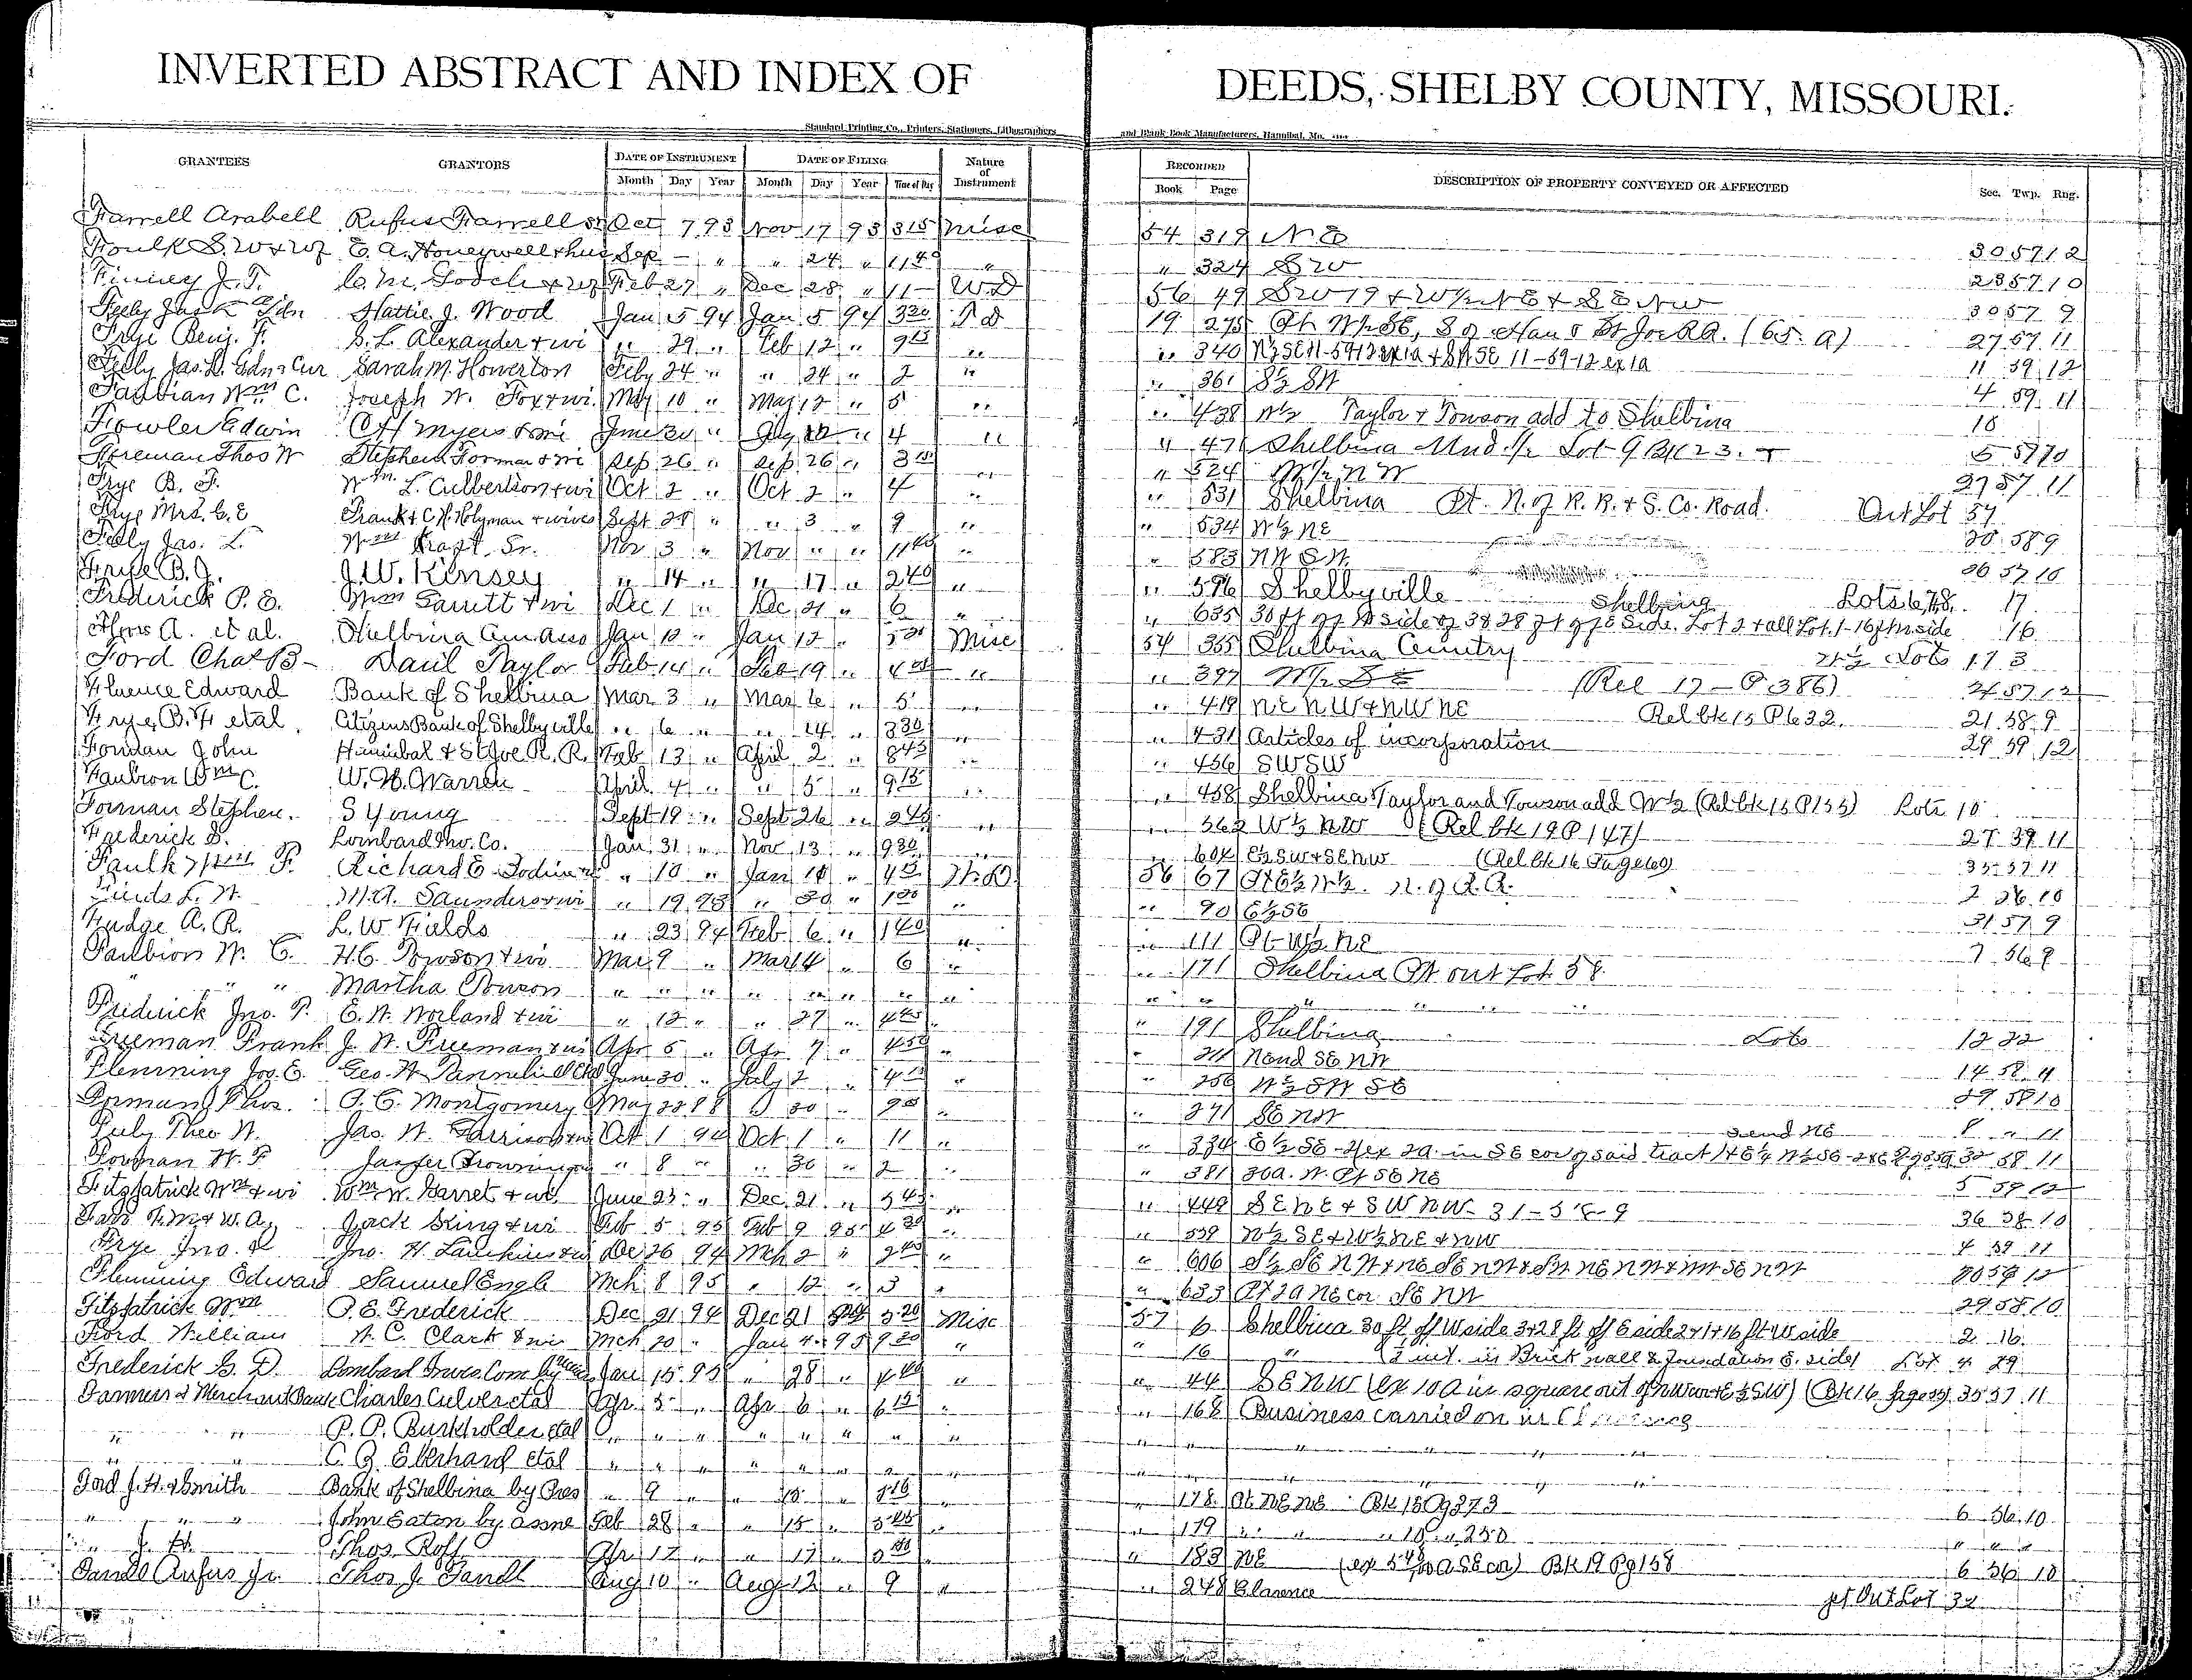 INVERTED ABSTRACT AND INDEX OF DEEDS, SHELBY COUNTY, MISSOURI.
Standard Printing Co., Printers, Stationers, Lithographers and Blank Book Manufacturers, Hannibal, Mo.
GRANTEES GRANTORS DATE OF INSTRUMENT DATE OF FILING Nature of Instrument RECORDED DESCRIPTION OF PROPERTY CONVEYED OR AFFECTED Sec. Twp. Rng.
Month Day Year Month Day Year Time of Day Book Page
Farrell Arabell Rufus Farrell Sr Oct 7 93 Nov 17 93 315 Misc 54 319 N E 30 57 12
Foulk S. W & wf E. A. Honeywell & hus Sep - " " 24 " 1140 " " 324 S W 23 57 10
Finney J. T. C. M. Gooch & wf Feb 27 " Dec 28 " 11 - W D 56 49 S W 19 & W 1/2 N E & S E N W 30 57 9
Feely Jas L Gdn Hattie J. Wood Jan 5 94 Jan 5 94 320 T d 19 275 Pt W 1/2 SE, S of Han & St Joe RR. (65. A) 27 57 11
Frye Benj. F. S. L. Alexander & wi " 29 " Feb 12 " 915 " " 340 N 1/2 SE 11-59-12 ex 1a & SW SE 11-59-12 ex 1a 11 59 12
Feely Jas. L. Gdn & Cur Sarah M. Howerton Feby 24 " " 24 " 2 " " 361 S 1/2 SW 4 59 11
Faubian Wm C. Joseph W. Fox & wi. May 10 " May 12 " 5 " " 438 W 1/2 Taylor & Towson add to Shelbina 10
Fowler Edwin C H Myers & wi June 30 " July 12 " 4 " " 471 Shelbina Und. 1/2 Lot 9 Blk 23.
Foreman Thos W Stephen Forman & wi Sep 26 " Sep 26 " 3 " " 524 W 1/2 N W 27 57 11
Frye B. F. Wm. L. Culbertson & wi Oct 2 " Oct 2 " 4 " " 531 Shelbina Pt. N. of R. R. & S. Co. Road. Out Lot 57
Frye Mrs. C. E Frank & C. H. Holyman & wives Sept 29 " " 3 " 9 " " 534 W 1/2 NE 30 58 9
Feely Jas. L. Wm Sr. Nov 3 " Nov " " 1140 " " 583 N W S W. 26 57 10
Frye B. J. J. W. Kinsey " 14 " " 17 " 240 " " 596 Shelbyville Lots 6,7,8. 17
Frederick P. E. Wm Garrett & wi Dec 1 " Dec 21 " 6 " " 635 30 ft off W side of 3 & 28 ft off E Side. Lot 2 & all Lot. 1-16 ft W side Shelbina 16
A. et al. Shelbina Cem. Asso Jan 12 " Jan 12 " 5 Misc 54 355 Shelbina Cemetry N 1/2 Lots 173
Ford Chas B - Danl Taylor Feb 14 " Feb 19 " 4 " " 397 W 1/2 S E (Rel 17 - P 386) 24 57 12
Fluence Edward Bank of Shelbina Mar 3 " Mar 6 " 5 " " 419 N E N W & N W N E Rel bk 15 P 632 21 58 9
Frye B. F. et al. Citizens Bank of Shelbyville " 6 " " 14 " 330 " " 431 Articles of incorporation 29 59 12
Forman John Hannibal & St Joe R. R. Feb 13 " April 2 " 845 " " 456 S W S W
Faubion Wm C. W. H. Warren April 4 " " 5 " 915 " " 458 Shelbina Taylor and Towson add W 1/2 (Rel bk 15 P 155) Lots 10
Forman Stephen. S Young Sept 19 " Sept 26 " 240 " " 562 W 1/2 N W (Rel bk 19 P 147) 27 59 11
Frederick S. Lombard Inv. Co. Jan 31 " Nov 13 " 930 " " 604 E 1/2 S W & S E N W (Rel bk 16 Page 60) 35 57 11
Faulk F. Richard E. " 10 " Jan 18 " 4 W. D. 56 67 Pt E 1/2 W 1/2. N. of R. R. 2 56 10
Fields L. W. M. A. Saunders & wi " 19 93 " 30 " 1 " " 90 E 1/2 S E 31 57 9
Fudge A. R. L. W. Fields " 23 94 Feb 6 " 140 " " 111 Pt W 1/2 N E 7 56 9
Faubion W. C. H. C. Towson & wi Mar 9 " Mar 14 " 6 " " 171 Shelbina Pt out Lot 58
" " " Martha Towson " " " " " " " " " " " " "
Frederick Jno. P. E. W. Worland & wi " 12 " " 27 " 445 " " 191 Shelbina Lots 12 22
Freeman Frank J. W. Freeman & wi Apr 5 " Apr 7 " 450 " " 211 N end S E N W 14 58 11
Flemming Jos. E. Geo. W. June 30 " July 2 " 4 " " 256 W 1/2 S W S E 29 58 10
Forman Thos. O. C. Montgomery May 22 88 30 " 9 " " 271 S E N W S end N E 8 " 11
Feely Theo W. Jas. W. Garrison & wi Oct 1 94 Oct. 1 " 11 " " 334 E 1/2 S E ex 2 a. in S E cor of said tract 32 58 11
Forman W. F Jasper Browning " 8 " " 30 " 2 " " 381 30 a. W. Pt S E N E 5 59 12
Fitzpatrick Wm & wi Wm W. Garret & wi. June 23 " Dec. 21 " 545 " " 449 S E N E & S W N W - 31-58-9 36 58 10
Farr T. M. & W. A. Jack King & wi Feb 5 95 Feb 9 95 4 30 " " 539 N 1/2 S E & W 1/2 N E & N W 4 59 11
Frye Jno. Jno. H. Dec 26 94 Mch 2 " 2 " " 606 S 1/2 S E N W & N E S E N W & S W N E N W & N W S E N W 30 59 12
Flemming Edward Samuel Engle Mch 8 95 " 12 " 3 " " 633 Pt 2 a N E cor S E N W 29 58 10
Fitzpatrick Wm P. E. Frederick Dec 21 94 Dec 21 94 5 20 Misc 57 6 Shelbina 30 ft off W side 3 & 28 ft off E side 2 & 1 & 16 ft W side 2 16
Ford William W. C. Clark & wi Mch 20 " Jan 4 95 9 30 " " 16 " (1/2 int. in Brick wall & Foundation E. side) Lot 4 29
Frederick S. D. Lombard Inves. Com Jan 15 95 " 28 " 4 40 " " 44 S E N W (ex 10 a in square out of N W cor & E 1/2 S W) (Bk 16 page 59) 35 57 11
Farmers & Merchant Bank Charles Culver et al Apr. 5 " Apr 6 " 6 15 " " 168 Business carried on in Clarence
" " P. P. Burkholder et al " " " " " " " " " " " " "
" " C. B. Eberhard et al " " " " " " " " " " " " "
Ford J. H. & Smith Bank of Shelbina by Pres " 9 " " 15 " 3 15 " " 178 Pt N E N E Bk 15 Pg 273 6 56 10
" " " John Eaton by assne Feb 28 " " 15 " 3 45 " " 179 " " " 18 " 250 " " "
" J. H. Thos. Roff Apr 17 " " 17 " 3 " " 183 N E (ex 5 a S E cor) Bk 19 Pg 158 6 56 10
Farrell Rufus Jr. Thos J. Farrell Aug 10 " Aug 12 " 9 " " 248 Clarence pt Out Lot 32